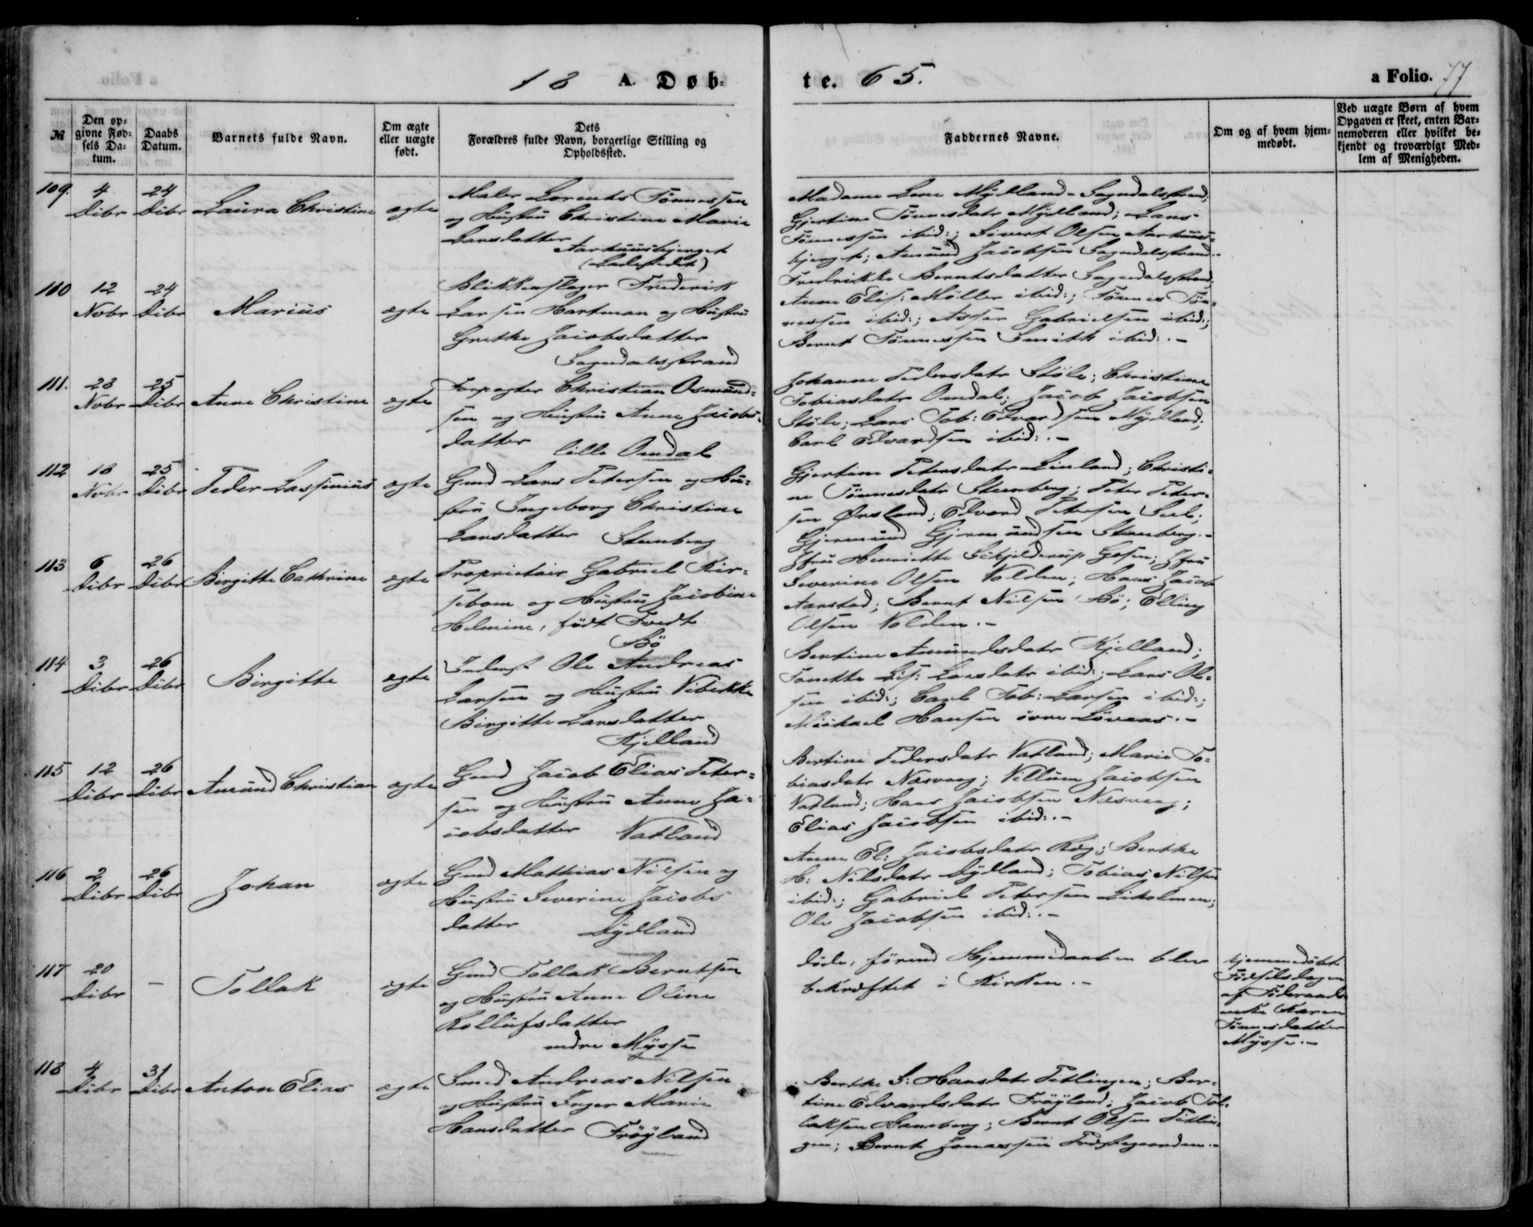 18 A. Døb-
te. 65.
a Folio. 77
№
Den op-
givne Fød-
sels Da-
tum.
Daabs
Datum.
Barnets fulde Navn.
Om ægte
eller uægte
født.
Dets
Forældres fulde Navn, borgerlige Stilling og
Opholdssted.
Faddernes Navne.
Om og af hvem hjem-
medøbt.
Ved uægte Børn af hvem
Opgaven er skeet, enten Bar-
nemoderen eller hvilket be-
kjendt og troværdigt Med-
lem af Menigheden.
109. 4 Dibr 24 Dibr Laura Christine ægte
Maler Lorents Tønnessen
og Hustru Christine Marie
Larsdatter
(Ladestedet)
Madame Lene Mydland Sogndalstrand,
Gjertine Tønnesdatr Mydland; Lars
Tønnessen ibid:; Sivert Olsen
Amund Jacobsen Sogndalstrand.-
110 12 Nobr 24 Dibr Marius ægte
Blikkenslager Frederik
Larsen Hartman og Hustru
Grethe Jacobsdatter
Sogndalsstrand
Fredrikke Berntsdatter Sogndalstrand
Anne Elis: Møller ibid:; Tønnes Tøn-
nessen ibid:; Asser Gabrielsen ibid:;
Bernt Tønnessen Smith ibid:.-
111. 23 Nobr 25 Dibr Anne Christine ægte
Forpagter Christian Osmund-
sen og Hustru Anne Jacobs-
datter
lille Omdal
Johanne Pedersdatr Støle; Christine
Tobiasdatr Omdal; Jacob Jacobsen
Støle; Lars Tob: Edvardsen Mydland;
Carl Edvardsen ibid:.-
112 18 Nobr 25 Dibr Peder Lassenius ægte
Gmd Lars Petersen og Hu-
stru Ingeborg Christine
Larsdatter Stenberg
Gjertine Petersdatr Linland; Christi-
ne Tønnesdatr Steenberg; Peter Peter-
sen Ørsland; Edvard Petersen
Gjermund Gjermundsen Stenberg.-
113 6 Dibr 26 Dibr Birgitte Cathrine ægte
Proprietair Gabriel Kir-
sebom og Hustru Jacobine
Helmine, født Tvedt
Bö
Jfru Henriette Schjelderup Jfru
Severine Olsen Volden; Hans Jacob
Aarstad; Bernt Nilsen Bö; Elling
Olsen Volden.-
114 3 Dibr 26 Dibr Birgitte ægte
Inderst Ole Andreas
Larsen og Hustru Vibekke
Birgitte Larsdatter
Kjelland
Bertine Amundsdatr Kjelland;
Tonette Lis: Larsdatr ibid:; Lars Ol-
sen ibid:; Carl Tob: Larsen ibid:;
Michael Hansen övre Löveaas.-
115 12 Dibr 26 Dibr Amund Christian ægte
Gmd Jacob Elias Peter-
sen og Hustru Anne Ja-
cobsdatter Vatland
Bertine Pedersdatr Vatland; Marie To-
biasdatr Næsvaag; Villum Jacobsen
Vatland; Hans Jacobsen Næsvaag;
Elias Jacobsen ibid:.-
116 2 Dibr 26 Dibr Johan ægte
Gmd Mathias Nilsen og
Hustru Severine Jacobs
datter Dydland
Anne El: Jacobsdatr Bertha
H: Nilsdatr Dydland; Tobias Nilsen
ibid:; Gabriel Petersen
Ole Jacobsen ibid:.-
117 20 Dibr - Tollak ægte
Gmd Tollak Berntsen
og Hustru Anne Oline
Rollufsdatter
nedre Mysse
døde, førend Hjemmedaaben blev
bekræftet i Kirken.-
hjemmedøbt
Fødselsdagen
af
Karen
Tønnesdatter
Mysse.-
118 4 Dibr 31 Dibr Anton Elias ægte
Smed Andreas Nilsen
og Hustru Inger Marie
Hansdatter Frøyland
Berthe S: Hansdatr Tetlingen; Ber-
tine Edvardsdatr Frøyland; Jacob Tol-
laksen Haneberg; Bernt Olsen Tetlin-
gen; Bernt Jonassen Præstegaarden.-